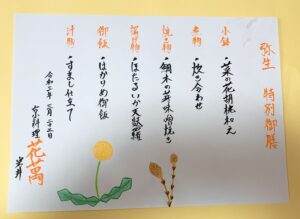 弥生 特別御膳
小鉢
・菜の花胡桃和え
煮物
・炊き合わせ
焼き物
・鯛木の芽味噌焼き
揚げ物
・ほたるいか天麩羅
御飯
・はかりめ御飯
汁物
・すまし仕立て
令和三年 三月二十三日
料理 花萬